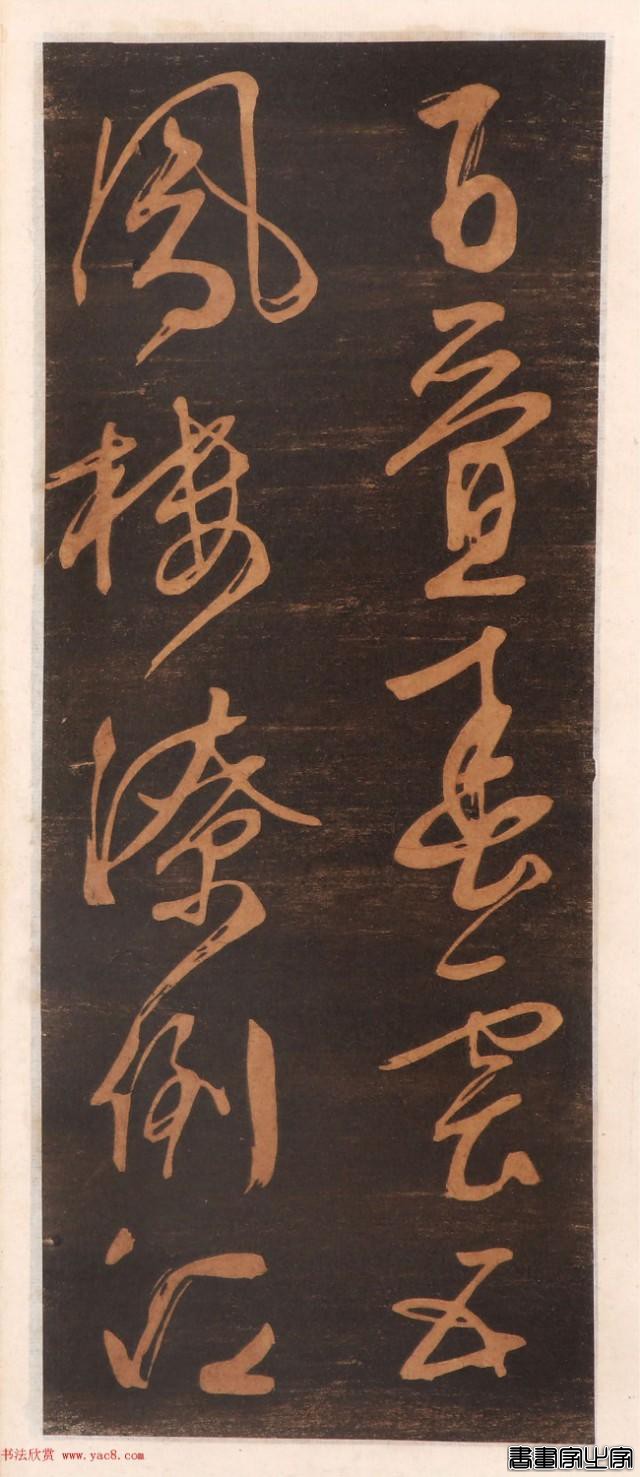 百疊雲五
鳳樓潦倒江
书法欣赏 www.yac8.com
書畫家之家